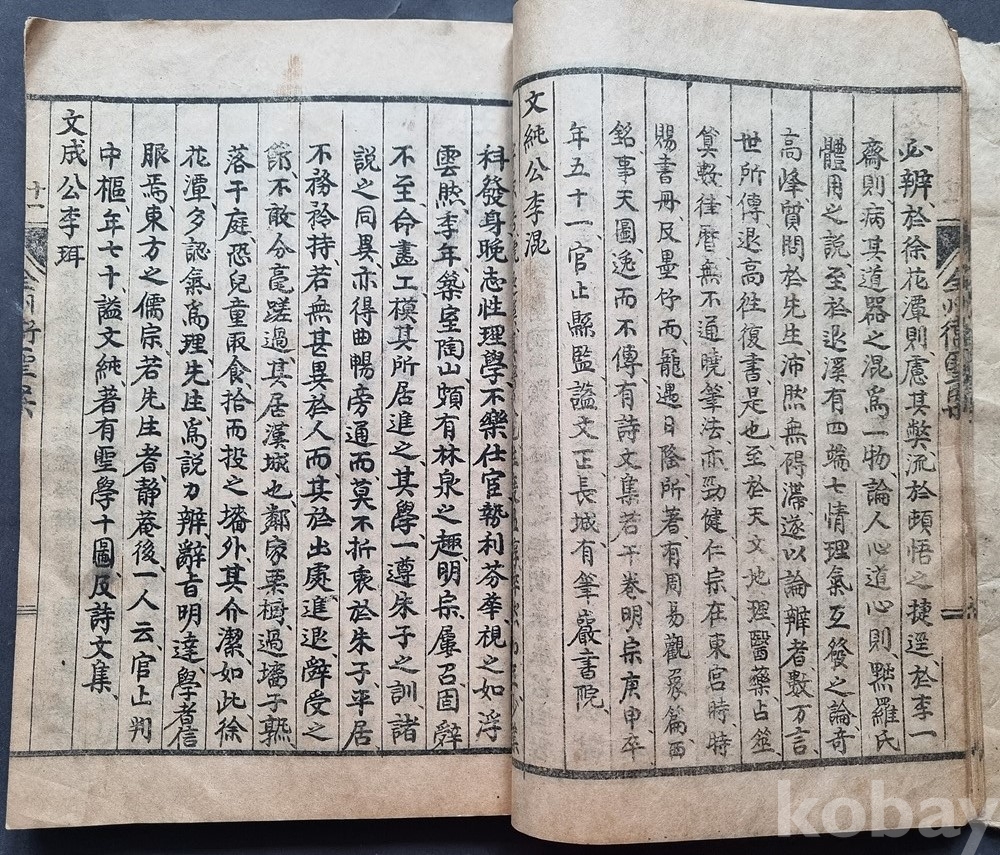 必辨於徐花潭則慮其弊流於頓悟之捷逕於李一
齋則病其道器之混爲一物論人心道心則黙羅氏
體用之說至於退溪有四端七情理氣互發之論奇
高峰質問於先生沛然無碍滯遂以論辨者數万言
世所傳退高往復書是也至於天文地理醫藥占筮
筭數律曆無不通曉筆法亦勁健仁宗在東宮時特
賜書冊及墨竹而寵遇日隆所著有周易觀象篇西
銘事天圖逸而不傳有詩文集若干卷明宗庚申卒
年五十一官止縣監謚文正長城有筆巖書院
文純公李滉
科發身晚志性理學不樂仕官勢利芬華視之如浮
雲然李年築室陶山頗有林泉之趣明宗屢召固辭
不至命畵工模其所居進之其學一遵朱子之訓諸
說之同異亦得曲暢旁通而莫不折衷於朱子平居
不務矜持若無甚異於人而其於出處進退辭受之
節不敢分毫蹉過其居漢城也鄰家栗樹過墻子熟
落于庭恐兒童取食拾而投之墻外其介潔如此徐
花潭多認氣爲理先生爲說力辨辭旨明達學者信
服焉東方之儒宗若先生者靜菴後一人云官止判
中樞年七十謚文純著有聖學十圖及詩文集
文成公李珥
十一
kobay